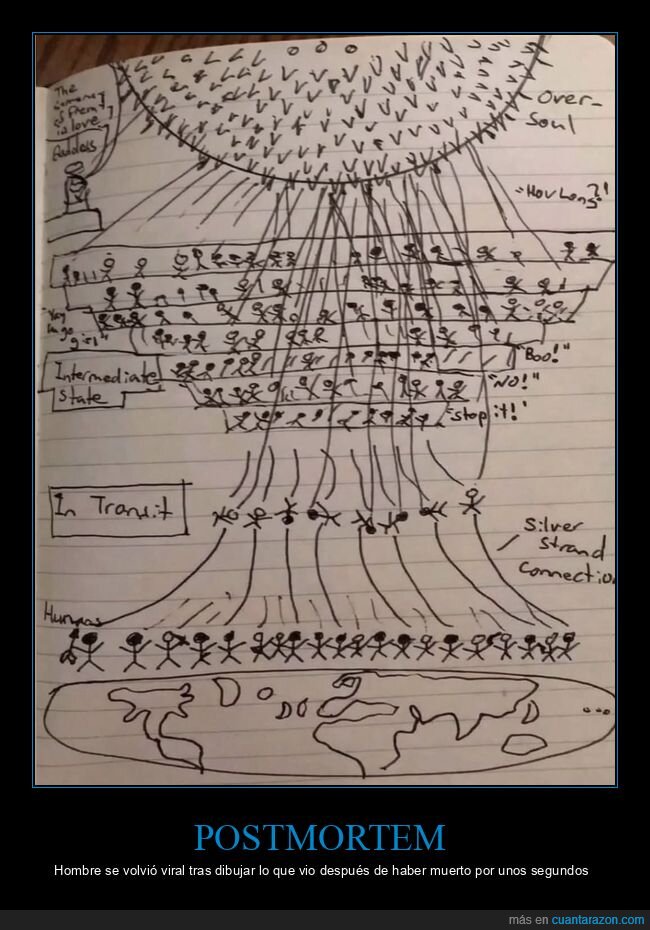 The
is love"
Goddess
Over-
Soul
"How Long?!
"Yay
girl"
Intermediate
State
"Boo!"
"NO!"
"Stop it!"
In Transit
Silver
Strand
Connection
Humans
POSTMORTEM
Hombre se volvió viral tras dibujar lo que vio después de haber muerto por unos segundos
más en cuantarazon.com